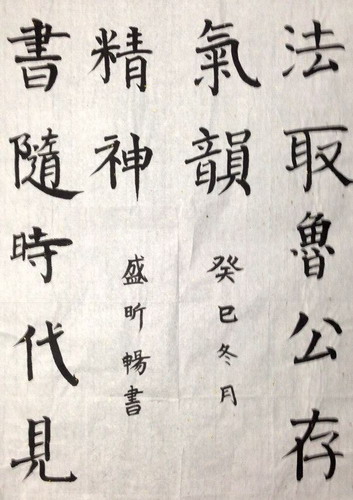 法取魯公存
氣韻
癸巳冬月
書隨時代見
精神
盛昕暢書